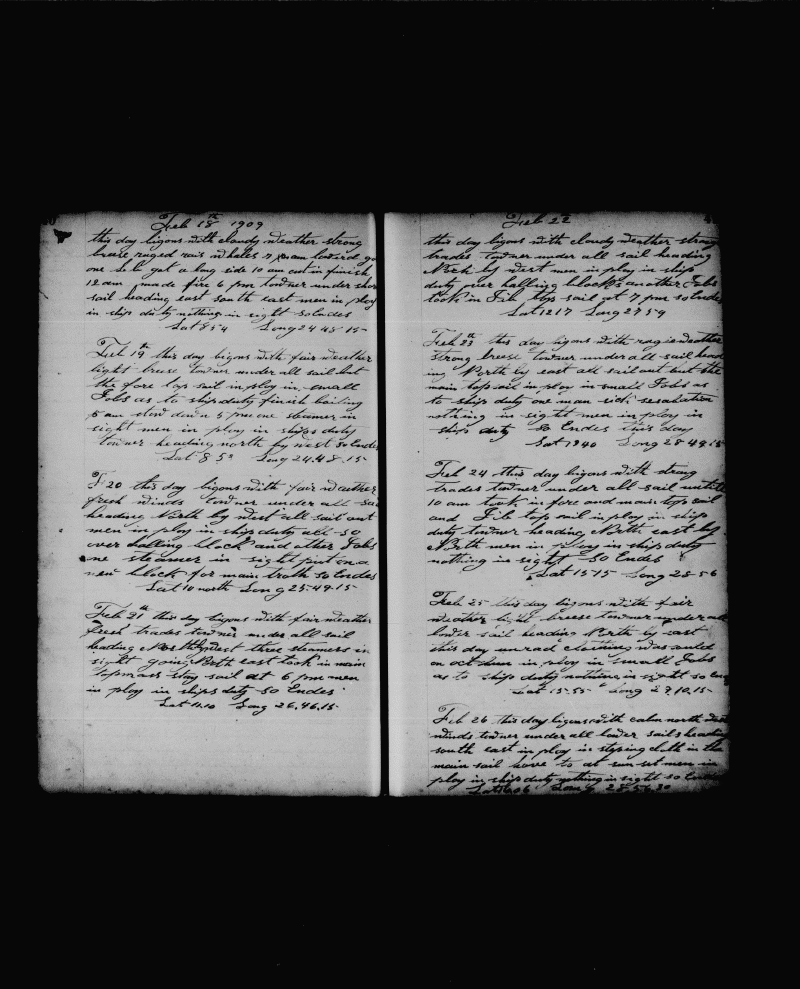 Feb 18th 1909
this day bigons with cloudy weather strong
breze raged rais whales 7 am lowird
one L b got a long side 10 am cut in finish
12 am made fire 6 pm towner under
sail heading east south east men in ploy
in ship duty nothing in sight so Endes
Lat 8 54 Long 24 48 15
Feb 19th this day bigons with fair weather
light breese towner under all sail but
the fore top sail in ploy in small
Jobs as to ship duty finish boiling
am slow down 5 pm one steamer in
sight men in ploy in ships duty
towner heading north by west so Endes
Lat 8 5 Long 24.48.15
F 20 this day bigons with fair weather
fresh winds towner under all sail
heading North by west all sail out
men in ploy in ship duty all so
over halling block and other Jobs
one steamer in sight put on a
new block for main so Endes
Lat 10 north Long 25.49.15
Feb 21st this day bigons with fair weather
fresh trades towner under all sail
heading North West three steamers in
sight going North east took in main
topmast stay sail at 6 pm men
in ploy in ships duty so Endes
Lat 11.10 Long 26.46.15
Feb 22
this day bigons with cloudy weather strong
trades towner under all sail heading
North by west men in ploy in ship
duty over halling blocks another Jobs
took in Jib top sail at 7 pm so Endes
Lat 1217 Long 27 59
Feb 23th this day bigons with weather
strong breese towner under all sail head
ing North by east all sail out but the
main top sail in ploy in small Jobs as
to ship duty one man sick
nothing in sight men in ploy in
ship duty so Endes this day
Lat 1340 Long 28 49 15
Feb 24 this day bigons with strong
trades towner under all sail untill
10 am took in fore and main top sail
and Jib top sail in ploy in ship
duty towner heading North east by
North men in ploy in ship duty
nothing in sight So Endes
Lat 15 15 Long 28 56
Feb 25 this day bigons with fair
weather light breese towner under all
lower sail heading North by east
this day clothing was
men in ploy in small Jobs
as to ship duty nothing in sight so
Lat 15.55 Long 29.10.15
Feb 26 this day bigons with calm north west
winds towner under all lower sails heading
south east in ploy in cloth in the
main sail hove to at sun set men in
ploy in ship duty nothing in sight so Endes
Long 28.56.30